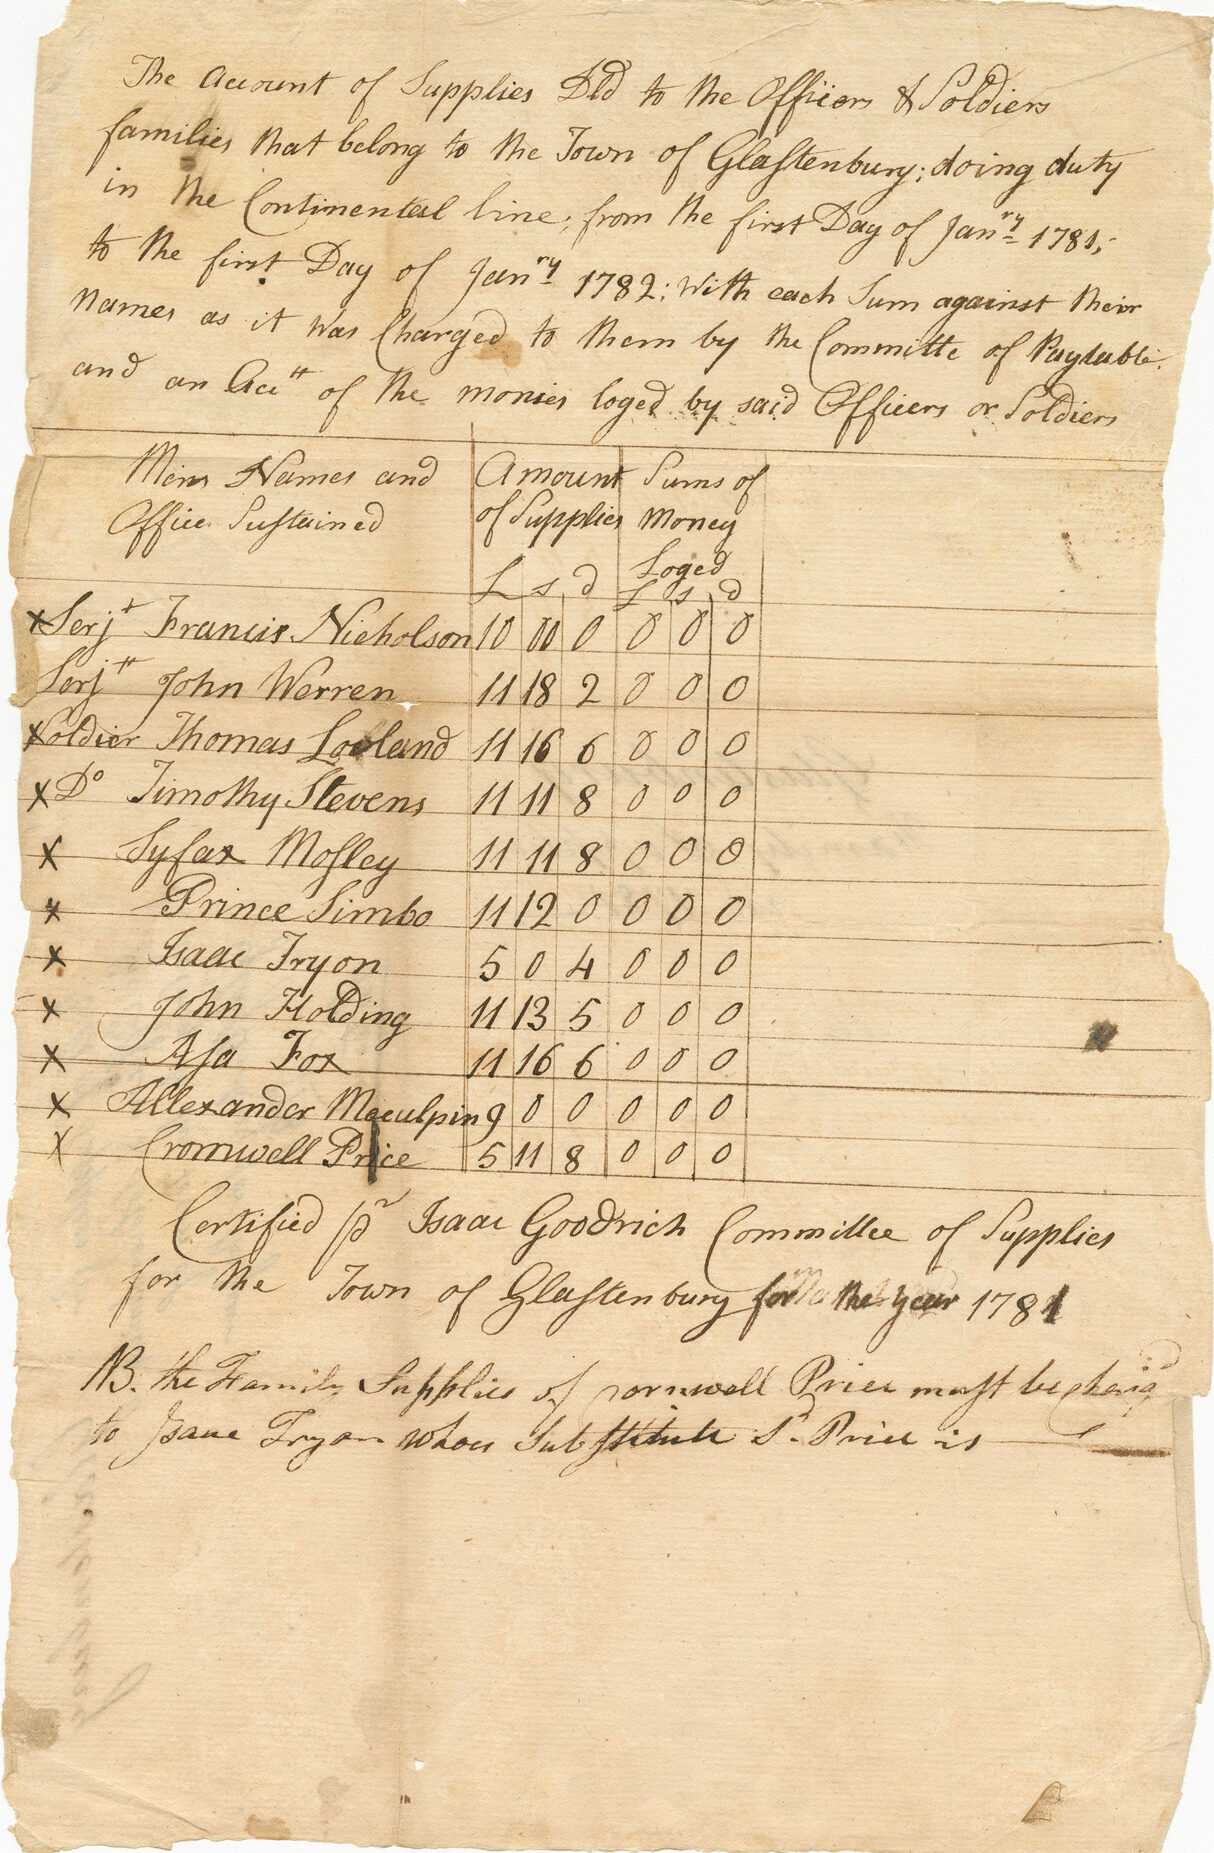 The Account of Supplies Dld to the Officers & Soldiers
families that belong to the Town of Glastenbury; doing duty
in the Continental line; from the first Day of Janry 1781;
to the first Day of Janry 1782; With each Sum against their
Names as it was Charged to them by the Committe of Paytable.
and an Actt of the monies loged by said Officers or Soldiers
Mens Names and Amount Sums of
Office Sustained of Supplies Money
Loged
L s d L s d
x Serjt Francis Nicholson 10 00 0 0 0 0
Serjtt John Werren 11 18 2 0 0 0
x Soldier Thomas Loveland 11 16 6 0 0 0
x Do Timothy Stevens 11 11 8 0 0 0
x Syfax Mosley 11 11 8 0 0 0
x Prince Simbo 11 12 0 0 0 0
x Isaac Tryon 5 0 4 0 0 0
x John Holding 11 13 5 0 0 0
x Asa Fox 11 16 6 0 0 0
x Allexander Mecculpin 9 0 0 0 0 0
x Cromwell Price 5 11 8 0 0 0
Certified pr Isaac Goodrich Committee of Supplies
for the Town of Glastenbury for the year 1781
NB. the Family Supplies of Cornwell Price must be chargd
to Isaac Tryon whoes Substitute Sd Price is